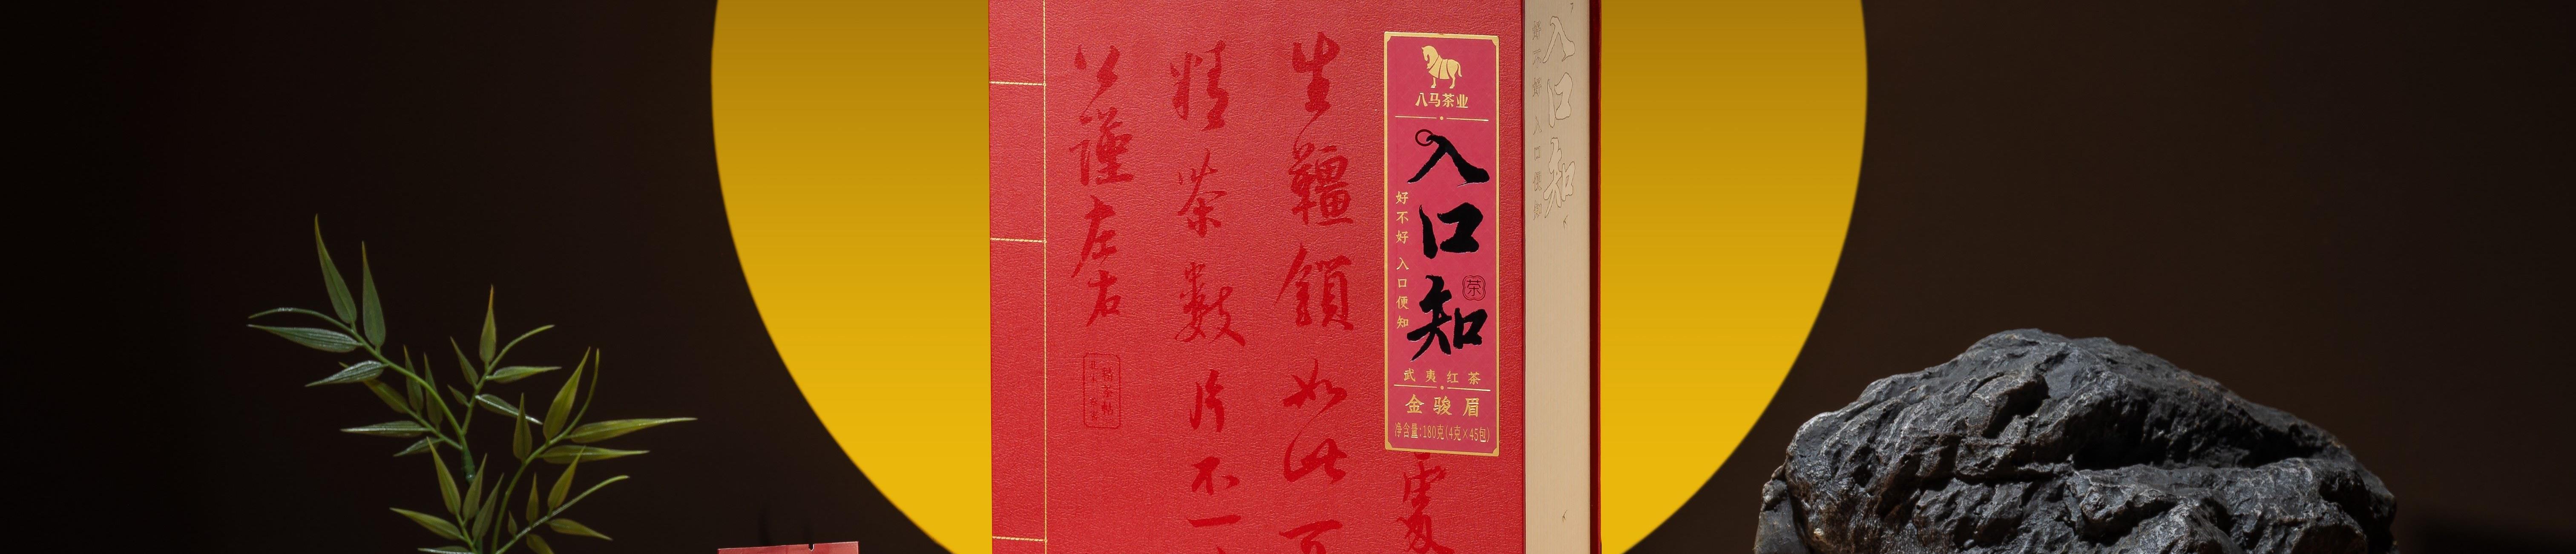 八马茶业
入口知
好不好 入口便知
茶
武夷红茶
金骏眉
净含量:180克(4克×45包)
生韁鎖如此
精茶數片不一
公謹左右
精茶帖
入口知